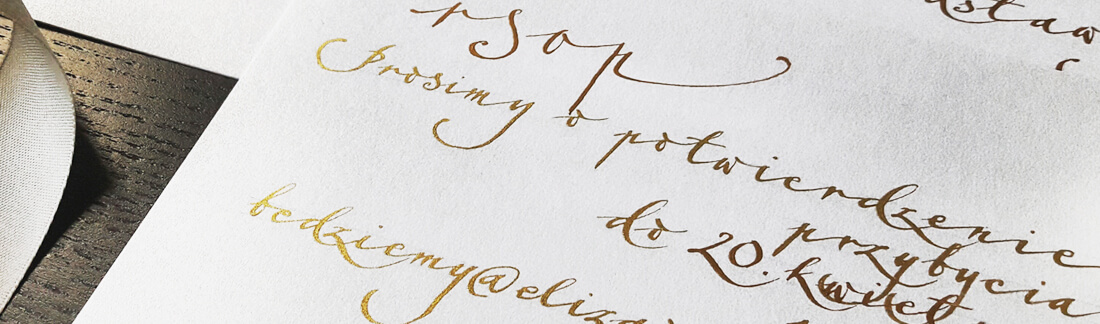 rsop
Prosimy o potwierdzenie
przybycia
do 20. kwiet
będziemy@eliza